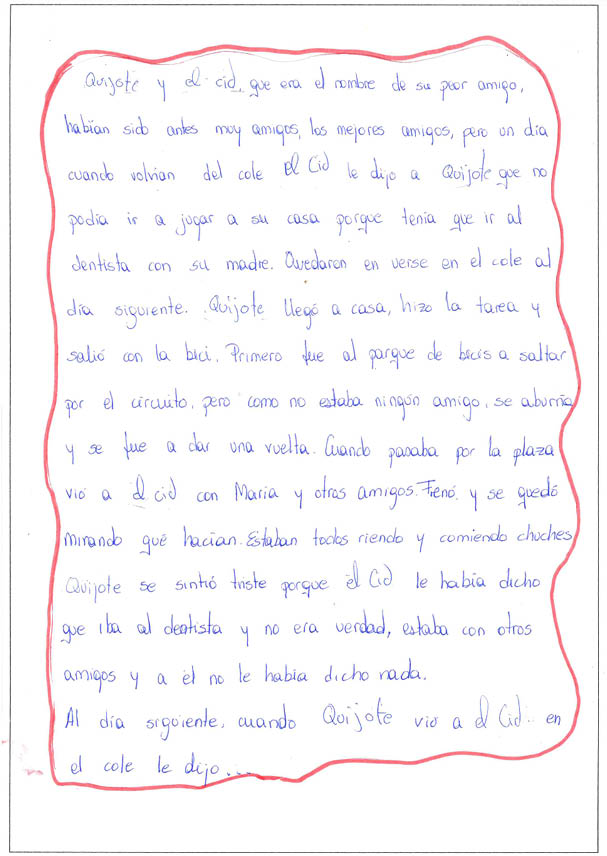 Quijote y el cid, que era el nombre de su peor amigo,
habían sido antes muy amigos, los mejores amigos, pero un día
cuando volvían del cole El Cid le dijo a Quijote que no
podía ir a jugar a su casa porque tenía que ir al
dentista con su madre. Quedaron en verse en el cole al
día siguiente. Quijote llegó a casa, hizo la tarea y
salió con la bici. Primero fue al parque de bicis a saltar
por el circuito, pero como no estaba ningún amigo, se aburría
y se fue a dar una vuelta. Cuando pasaba por la plaza
vio a el cid con María y otros amigos. Frenó y se quedó
mirando qué hacían. Estaban todos riendo y comiendo chuches
Quijote se sintió triste porque el Cid le había dicho
que iba al dentista y no era verdad, estaba con otros
amigos y a él no le había dicho nada.
Al día siguiente, cuando Quijote vio a el Cid.. en
el cole le dijo....